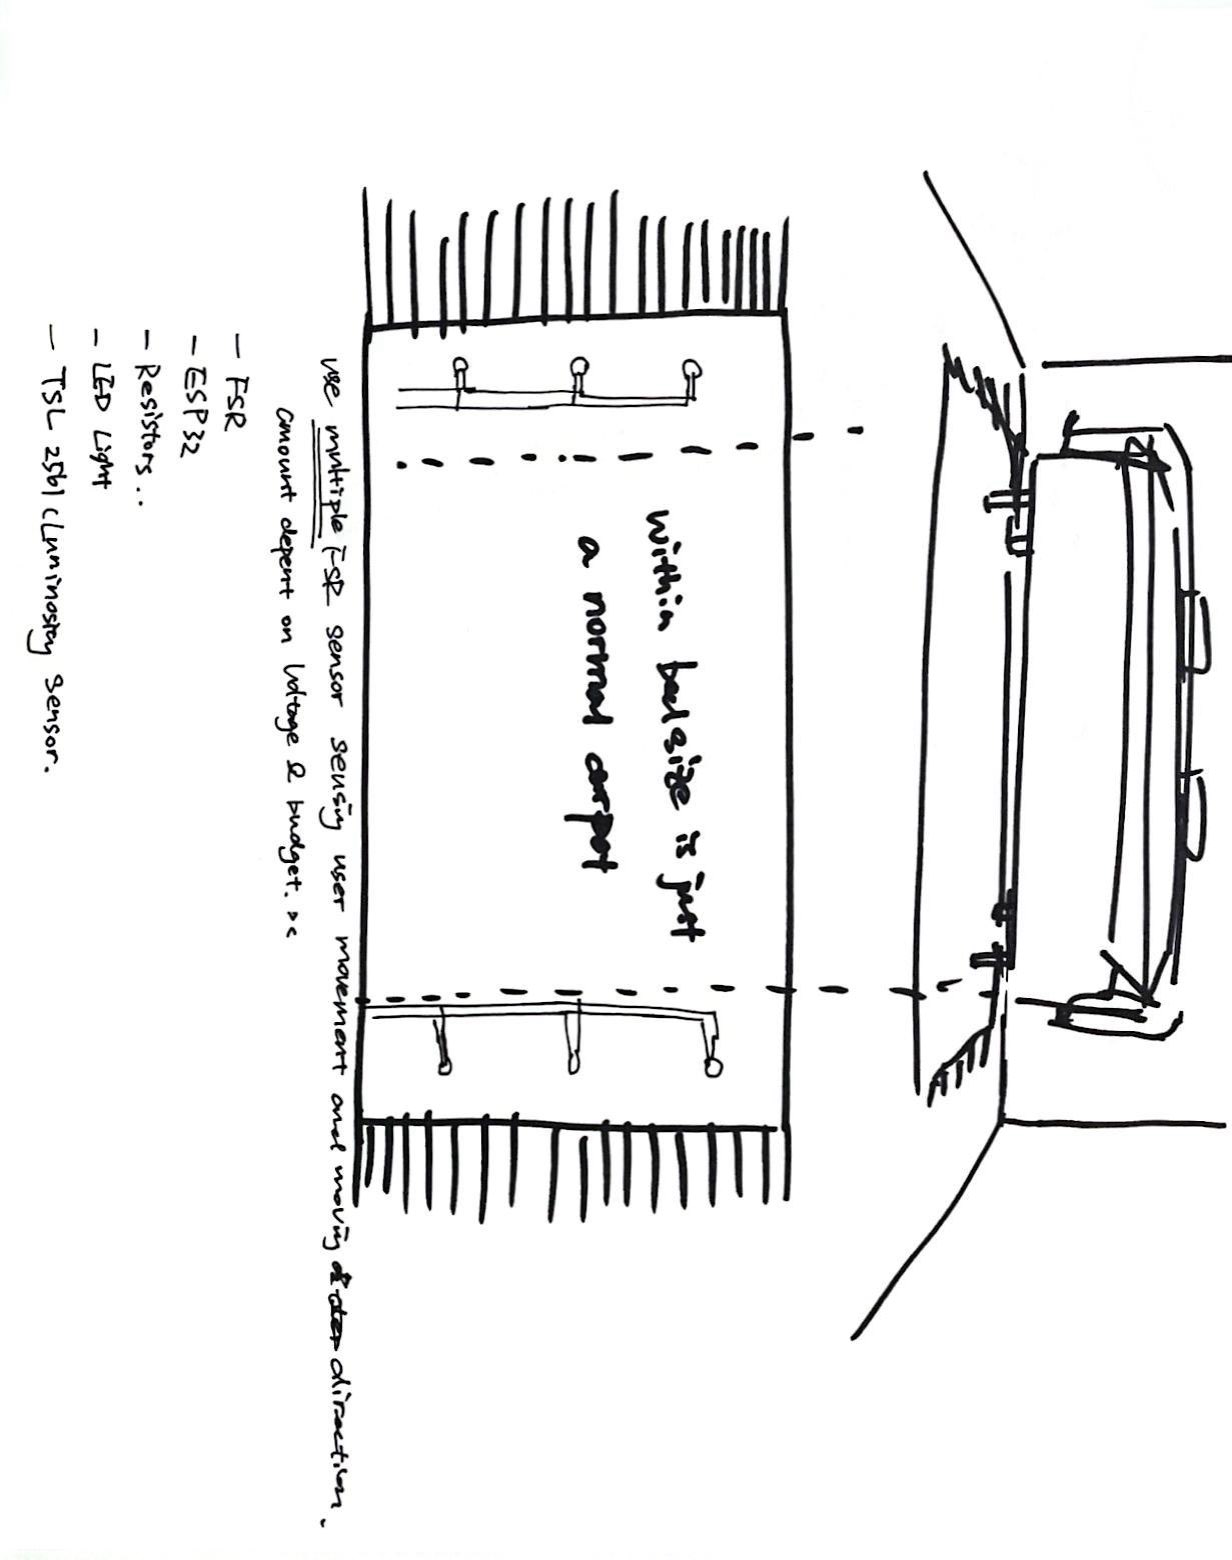 within bed size is just
a normal carpet
use multiple FSR sensor sensing user movement and moving direction.
amount depent on Voltage & budget. ><
- FSR
- ESP32
- Resistors..
- LED Light
- TSL 2561 (Luminostiy sensor.